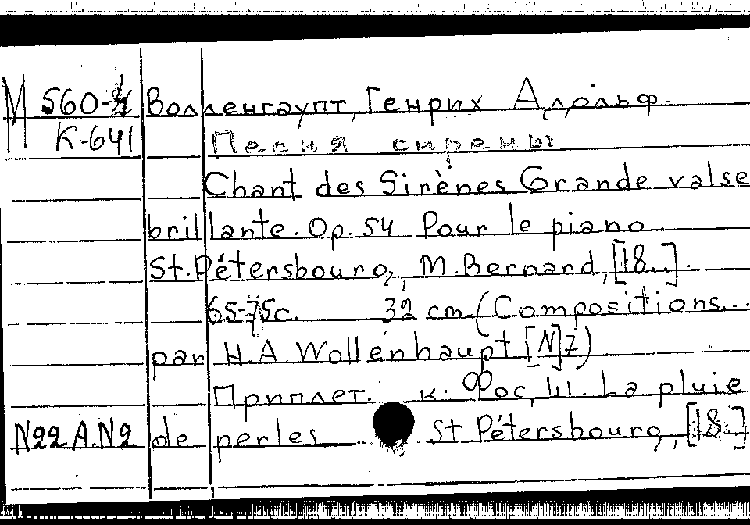 М 560-4 Волленгаупт, Генрих Адольф
К-641 Песня сирены
Chant des Sirènes Grande valse
brillante. Op. 54 Pour le piano
St. Pétersbourg, M. Bernard, [18..].
65-75с. 32 cm (Compositions...
par H.A Wollenhaupt [N]7)
Приплет. к: Фос, Ш. La pluie
N22 A.N2 de perles ... St Pétersbourg, [18..]